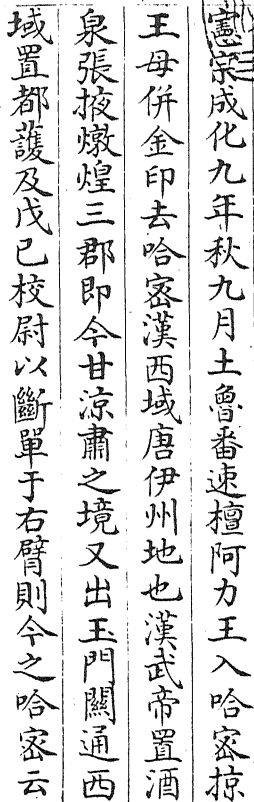 憲宗成化九年秋九月土魯番速檀阿力王入哈宻掠
王母併金印去哈宻漢西域唐伊州地也漢武帝置酒
泉張掖燉煌三郡即今甘凉肅之境又出玉門關通西
域置都䕶及戊巳校尉以斷單于右臂則今之哈宻云